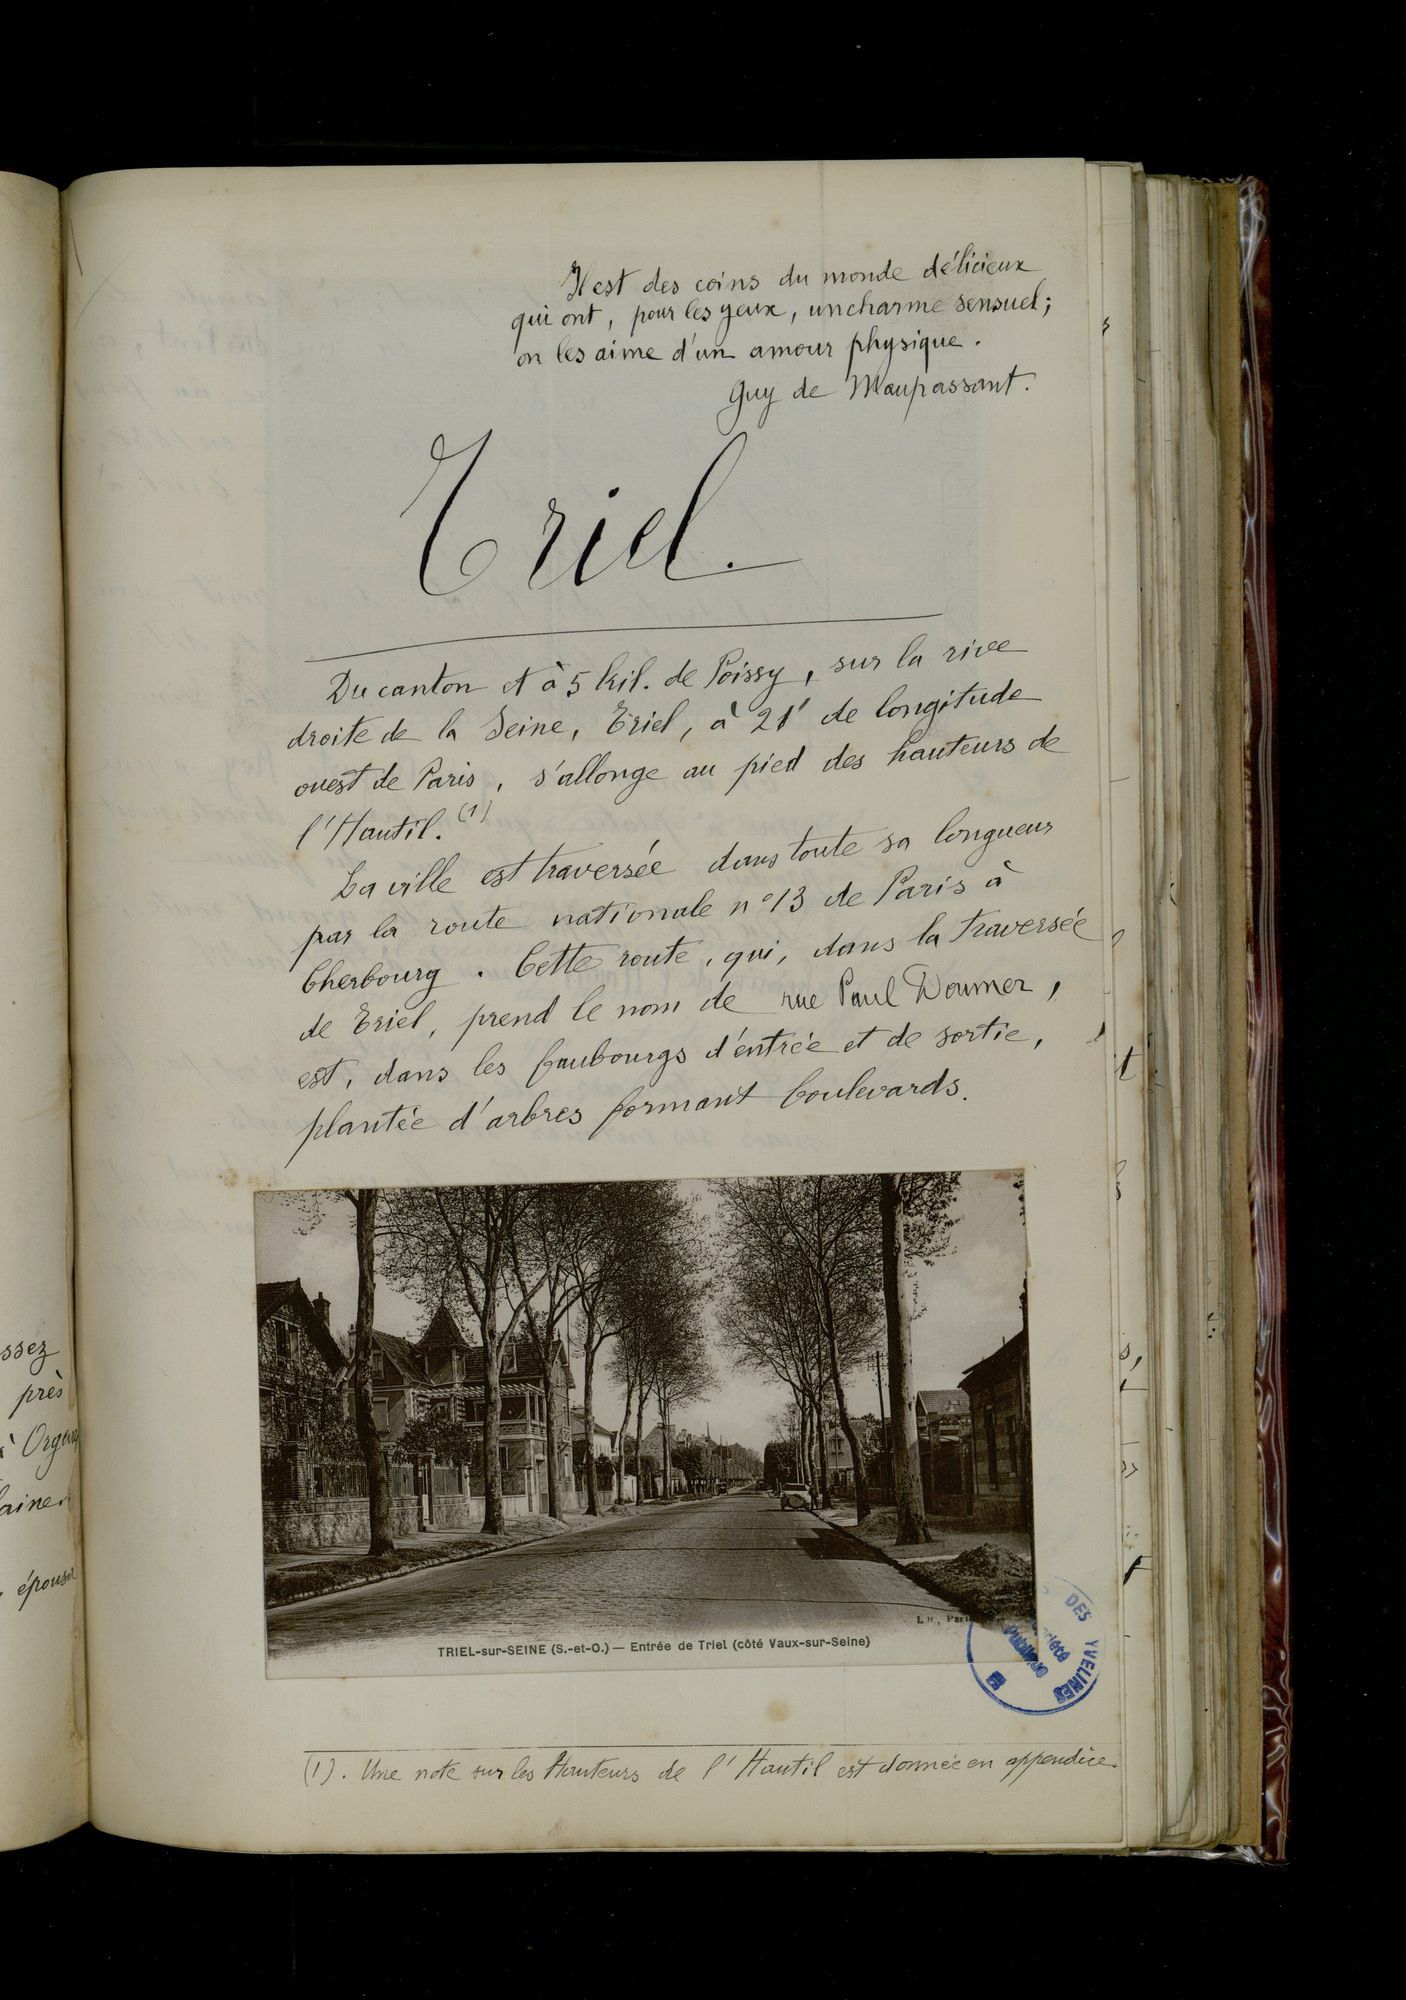 Il est des coins du monde délicieux
qui ont, pour les yeux, un charme sensuel;
on les aime d'un amour physique.
Guy de Maupassant.
Triel.
Du canton et à 5 kil. de Poissy, sur la rive
droite de la Seine, Triel, à 21' de longitude
ouest de Paris, s'allonge au pied des hauteurs de
l'Hautil. (1)
La ville est traversée dans toute sa longueur
par la route nationale n° 13 de Paris à
Cherbourg. Cette route, qui, dans la traversée
de Triel, prend le nom de rue Paul Doumer,
est, dans les faubourgs d'entrée et de sortie,
plantée d'arbres formant boulevards.
TRIEL-sur-SEINE (S.-et-O.) — Entrée de Triel (côté Vaux-sur-Seine)
DES YVELINES
(1). Une note sur les Hauteurs de l'Hautil est donnée en appendice.
ssez
près
à Orge
épous